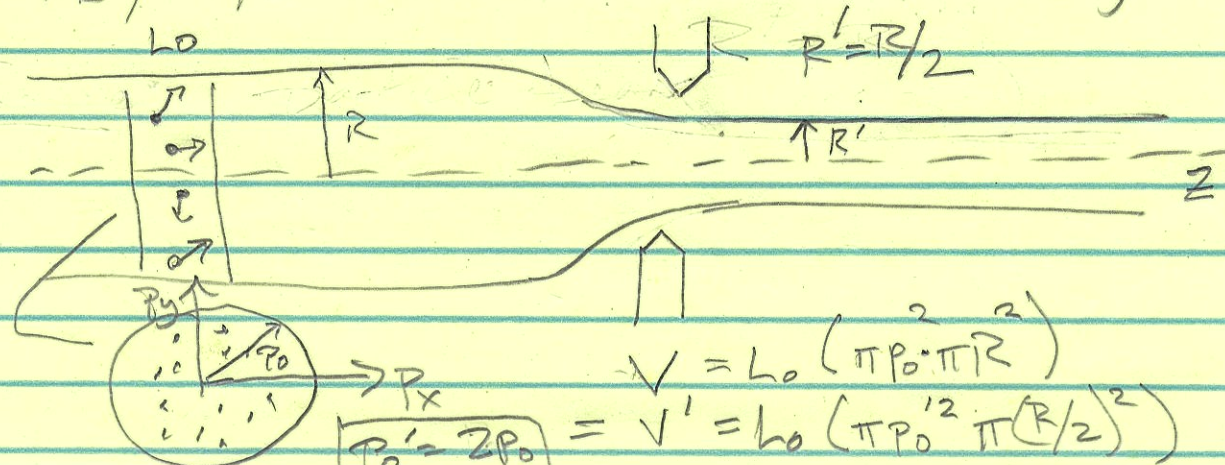 L0
R
R' = R/2
R'
Z
Py
P0
Px
V = L0 (πp0² · πR²)
P0' = 2p0
= V' = L0 (πp0'² π(R/2)²)